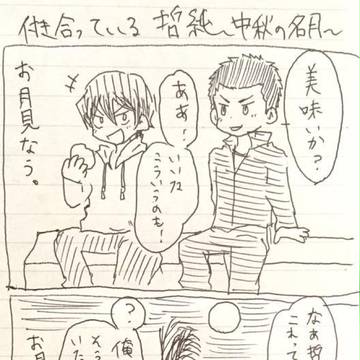 付き合っている 哲純〜中秋の名月〜
美味いか?
ああ!
いいな
こういうのも!
お月見なう。
なあ哲
これって
?
俺
そう
いた
お月